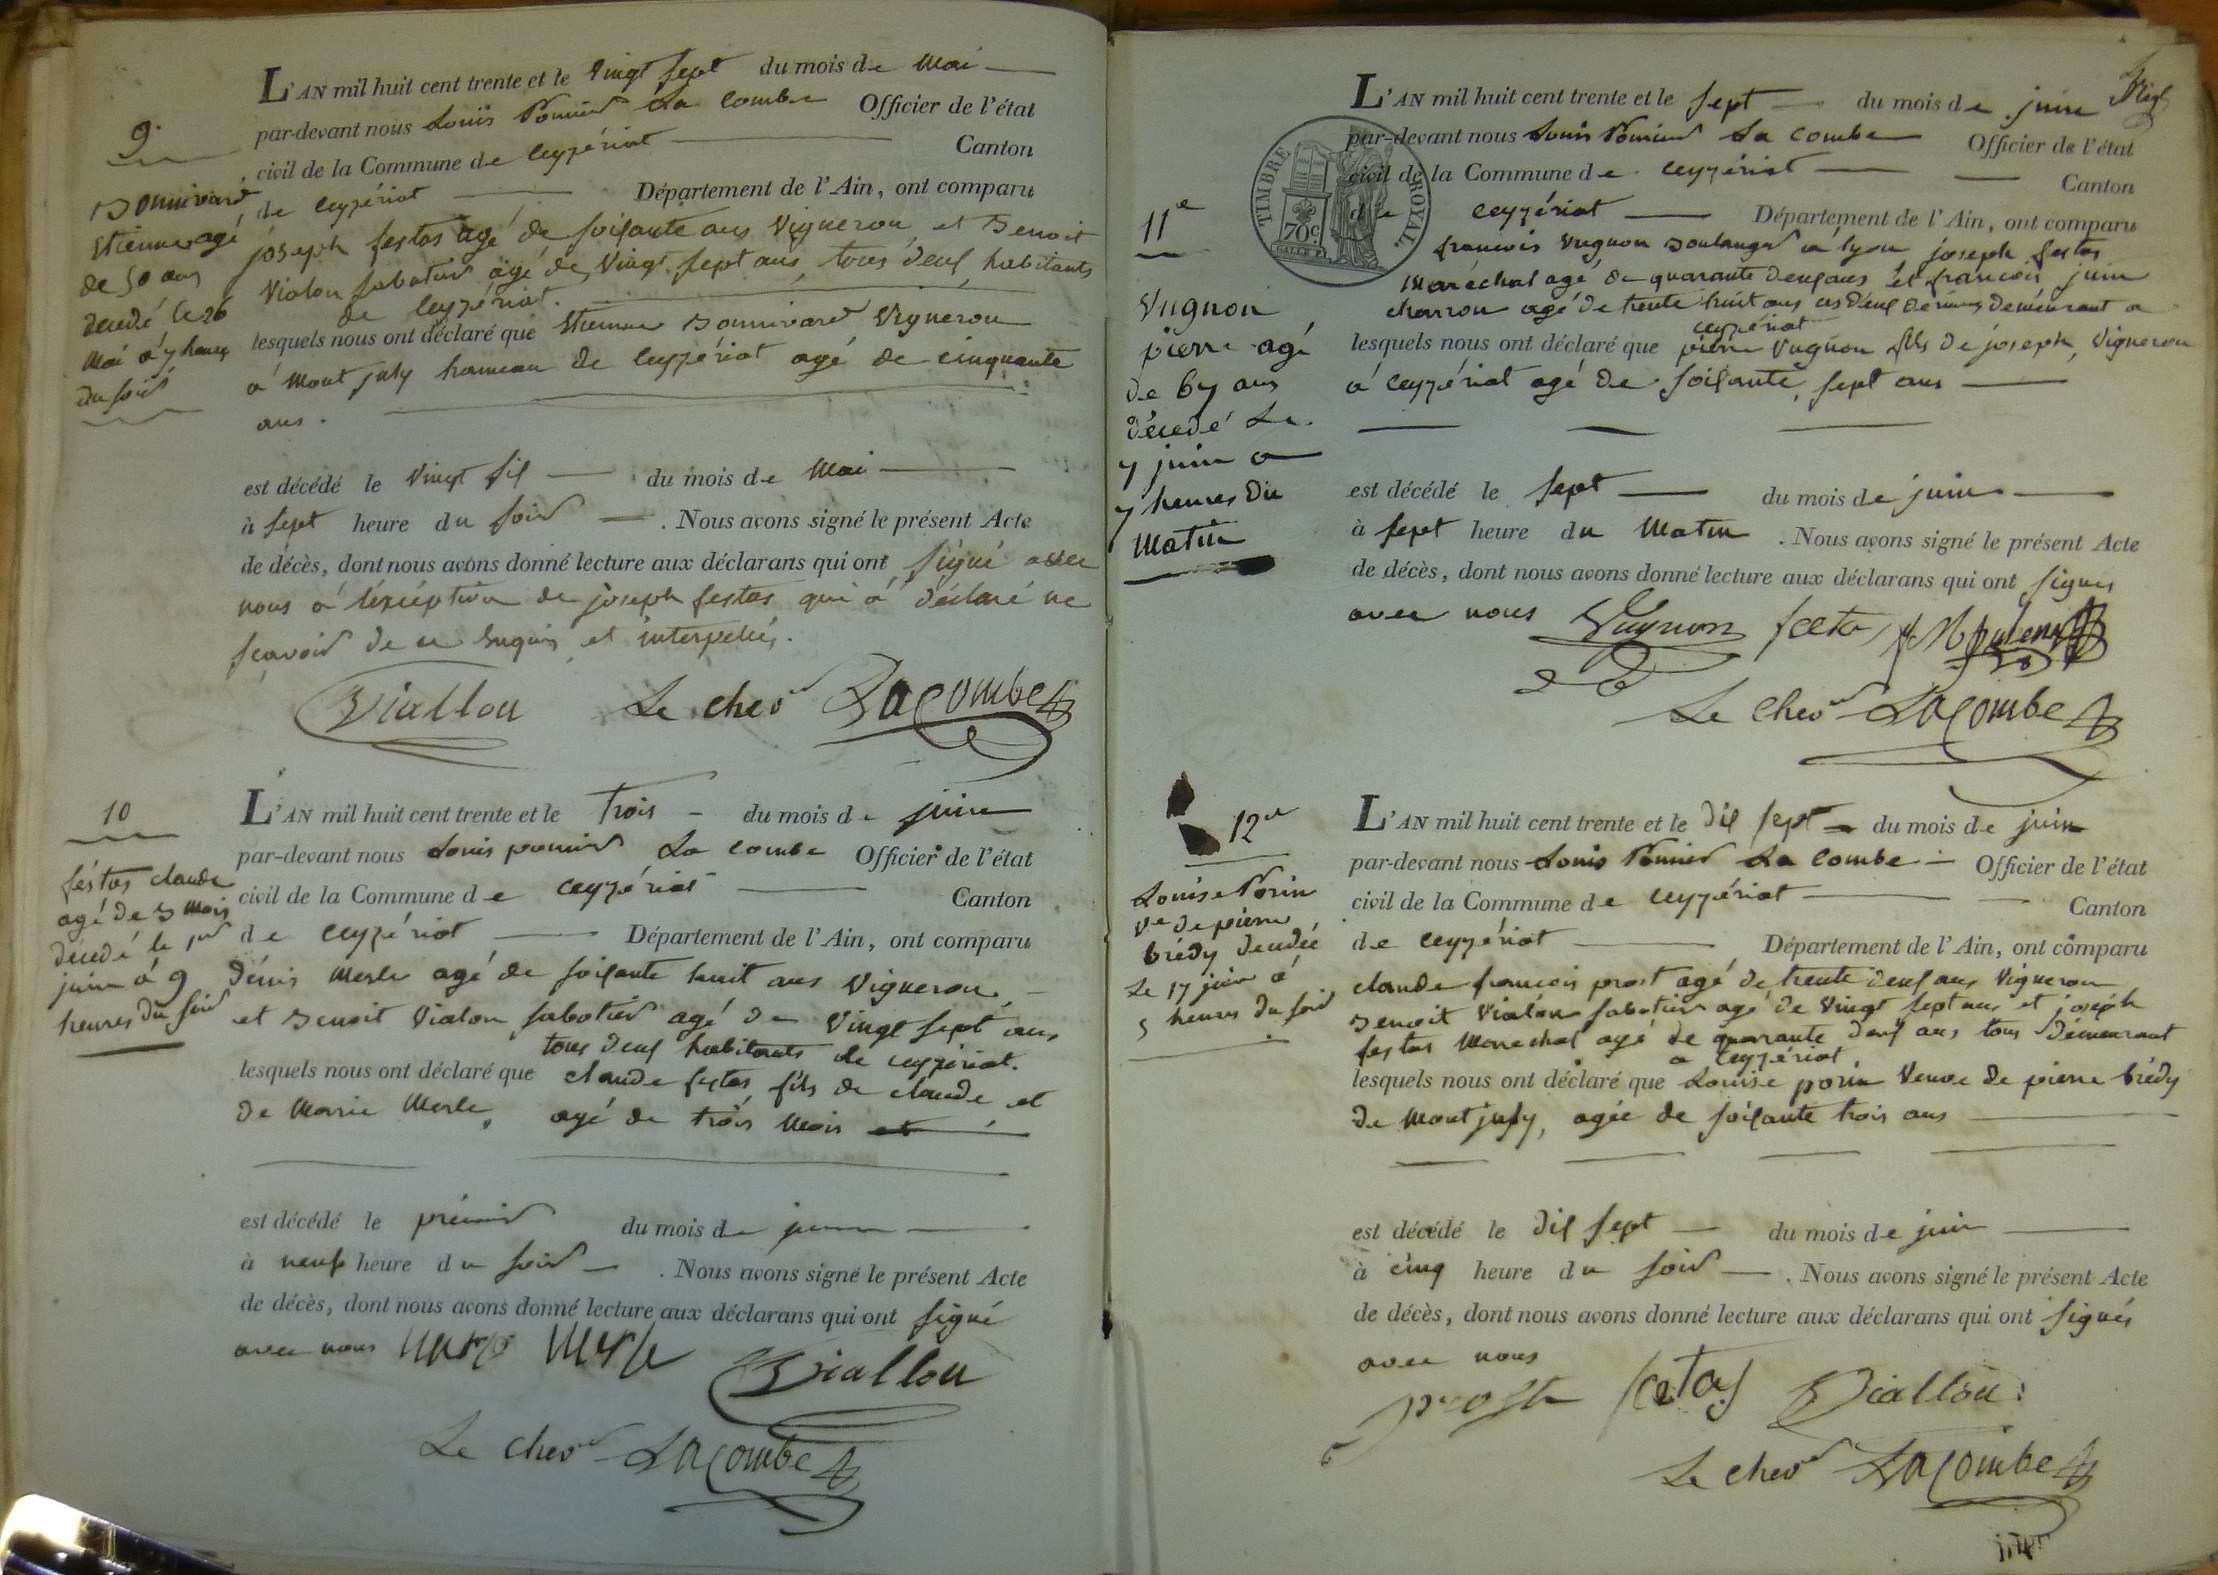 9.
Bonnivard
Etienne agé
de 50 ans
décédé le 26
Mai à 7 heures
du soir
L'AN mil huit cent trente et le vingt sept du mois de Mai
par-devant nous Louis Pommier La Combe Officier de l'état
civil de la Commune de Ceyzériat Canton
de Ceyzériat Département de l'Ain, ont comparu
joseph festas agé de soixante ans Vigneron et Benoit
Vialon sabotier agé de Vingt sept ans, tous deux habitants
de Ceyzériat.
lesquels nous ont déclaré que Etienne Bonnivard Vigneron
à Mont july hameau de Ceyzériat agé de cinquante
ans.
est décédé le Vingt six du mois de Mai
à sept heure du soir. Nous avons signé le présent Acte
de décès, dont nous avons donné lecture aux déclarans qui ont signé avec
nous à l'éxception de joseph festas qui à déclaré ne
sçavoir de ce Enquis et interpellés.
Viallon Le chevr Lacombe
10
féstas claude
agé de 3 mois
décédé le 1er
juin à 9
heures du soir
L'AN mil huit cent trente et le Trois du mois de juin
par-devant nous Louis pommier La combe Officier de l'état
civil de la Commune de Ceyzériat Canton
de Ceyzériat Département de l'Ain, ont comparu
Dénis Merle agé de soixante huit ans Vigneron
et Benoit Vialon sabotier agé de Vingt sept ans
tous deux habitants de ceyzériat.
lesquels nous ont déclaré que claude festas fils de claude et
de Marie Merle, agé de trois Mois
est décédé le prémier du mois de juin
à neuf heure du soir. Nous avons signé le présent Acte
de décès, dont nous avons donné lecture aux déclarans qui ont signé
avec nous Merle Viallon
Le chevr Lacombe
11e
Vugnon
pierre agé
de 67 ans
décédé Le
7 juin a
7 heures du
Matin
TIMBRE ROYAL
70 c.
L'AN mil huit cent trente et le sept du mois de juin
par-devant nous Louis Pommier La Combe Officier de l'état
civil de la Commune de Ceyzériat Canton
de Ceyzériat Département de l'Ain, ont comparu
francois Vugnon Boulanger à lyon joseph festas
Maréchal agé de quarante deux ans et francois juin
charron agé de trente huit ans ces deux derniers demeurant a
ceyzériat
lesquels nous ont déclaré que pierre Vugnon fils de joseph, Vigneron
à Ceyzériat agé de soixante, sept ans
est décédé le sept du mois de juin
à sept heure du Matin. Nous avons signé le présent Acte
de décès, dont nous avons donné lecture aux déclarans qui ont signés
avec nous Vugnon festas
Le Chevr Lacombe
12e
Louise Porin
Ve de pierre
brédy décédée
Le 17 juin à
5 heures du soir
L'AN mil huit cent trente et le dix sept du mois de juin
par-devant nous Louis Pommier La Combe Officier de l'état
civil de la Commune de Ceyzériat Canton
de Ceyzériat Département de l'Ain, ont comparu
claude francois prost agé de trente deux ans Vigneron
Benoit Vialon sabotier agé de Vingt sept ans et joseph
festas Marechal agé de quarante deux ans tous demeurant
a Ceyzériat.
lesquels nous ont déclaré que Louise porin Veuve de pierre brédy
de Mont july, agée de soixante trois ans
est décédé le dix sept du mois de juin
à cinq heure du soir. Nous avons signé le présent Acte
de décès, dont nous avons donné lecture aux déclarans qui ont signés
avec nous
prost festas Viallon
Le chevr Lacombe